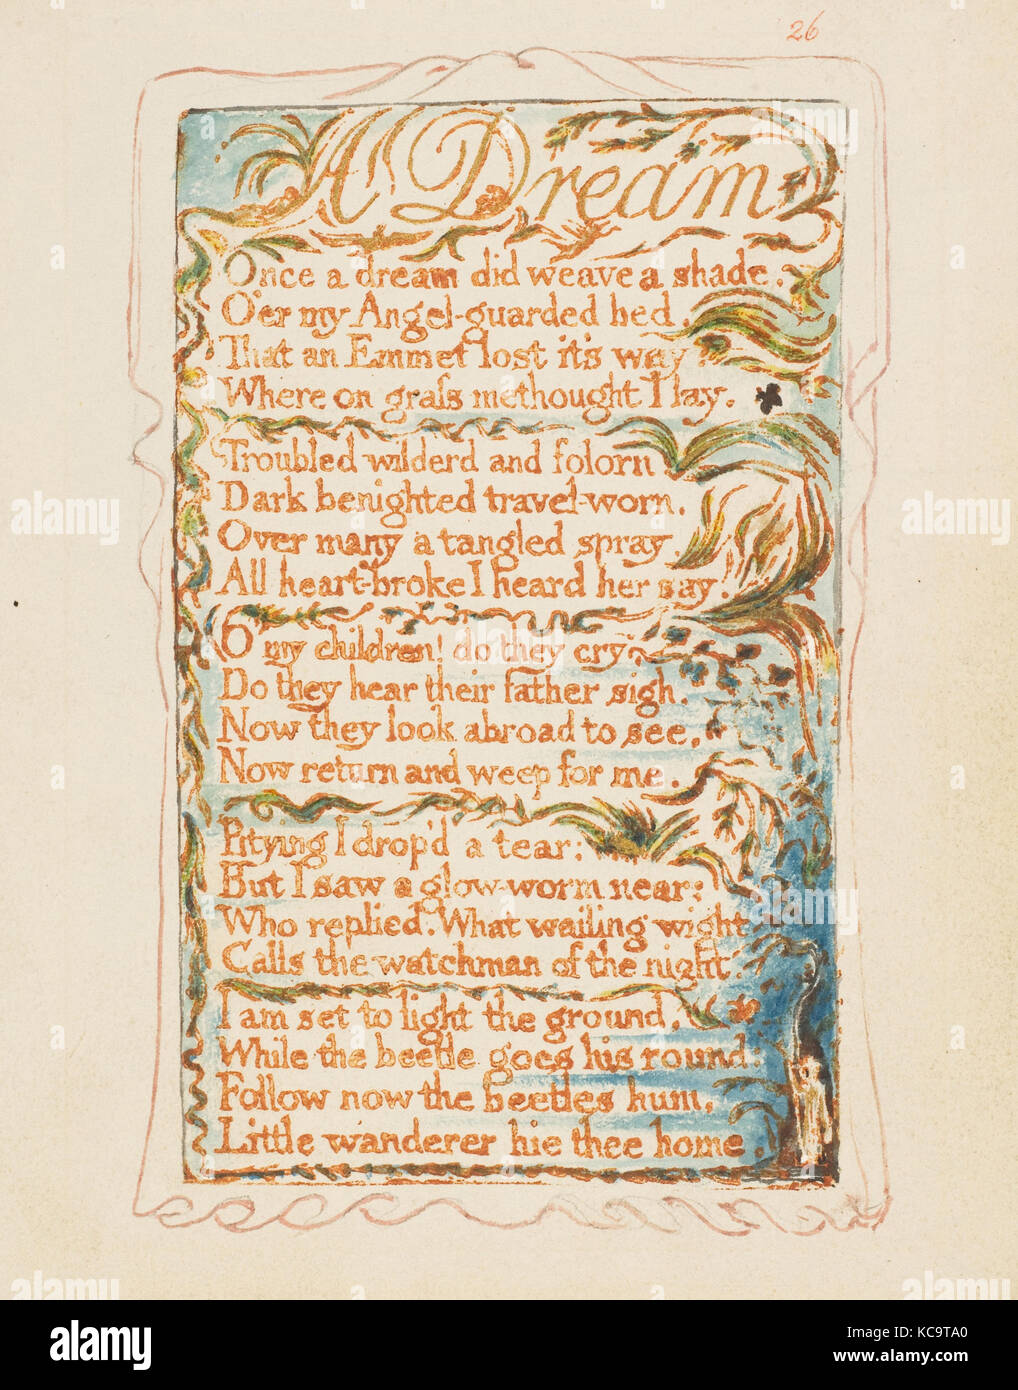 26
A Dream
Once a dream did weave a shade,
O'er my Angel-guarded bed,
That an Emmet lost it's way
Where on grass methought I lay.
Troubled wilderd and folorn
Dark benighted travel-worn,
Over many a tangled spray,
All heart-broke I heard her say.
O my children! do they cry,
Do they hear their father sigh.
Now they look abroad to see,
Now return and weep for me.
Pitying I drop'd a tear:
But I saw a glow-worm near:
Who replied. What wailing wight
Calls the watchman of the night.
I am set to light the ground,
While the beetle goes his round:
Follow now the beetles hum,
Little wanderer hie thee home.
alamy
alamy stock photo
KC9TA0
www.alamy.com